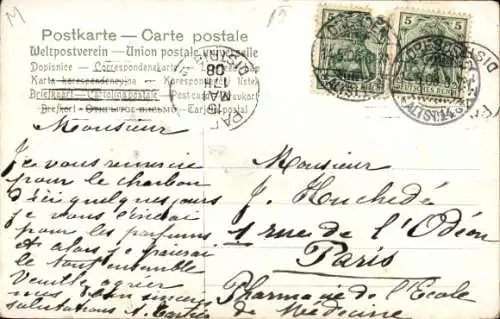 M
Postkarte – Carte postale
Weltpostverein – Union postale universelle
Dopisnice – Correspondenzkarte
Karta korespondencyjna – Korespondenčni listek
Briefkaart – Cartolina postale – Postcard
Brefkort – Открытое письмо – Tarjeta postal
5 5
DEUTSCHES REICH
DRESDEN
ALTST. 14
PARIS
08
MAI
Monsieur
Je vous remercie
pour le charbon
d'ici quelques jours
je vous
pour les parfums
et alors je
le tout ensemble
Veuillez agréer
mes bien sincères
salutations A.
Monsieur
J. Houchedé
1 rue de l'Odéon
Paris
Pharmacie de l'Ecole
de Médecine